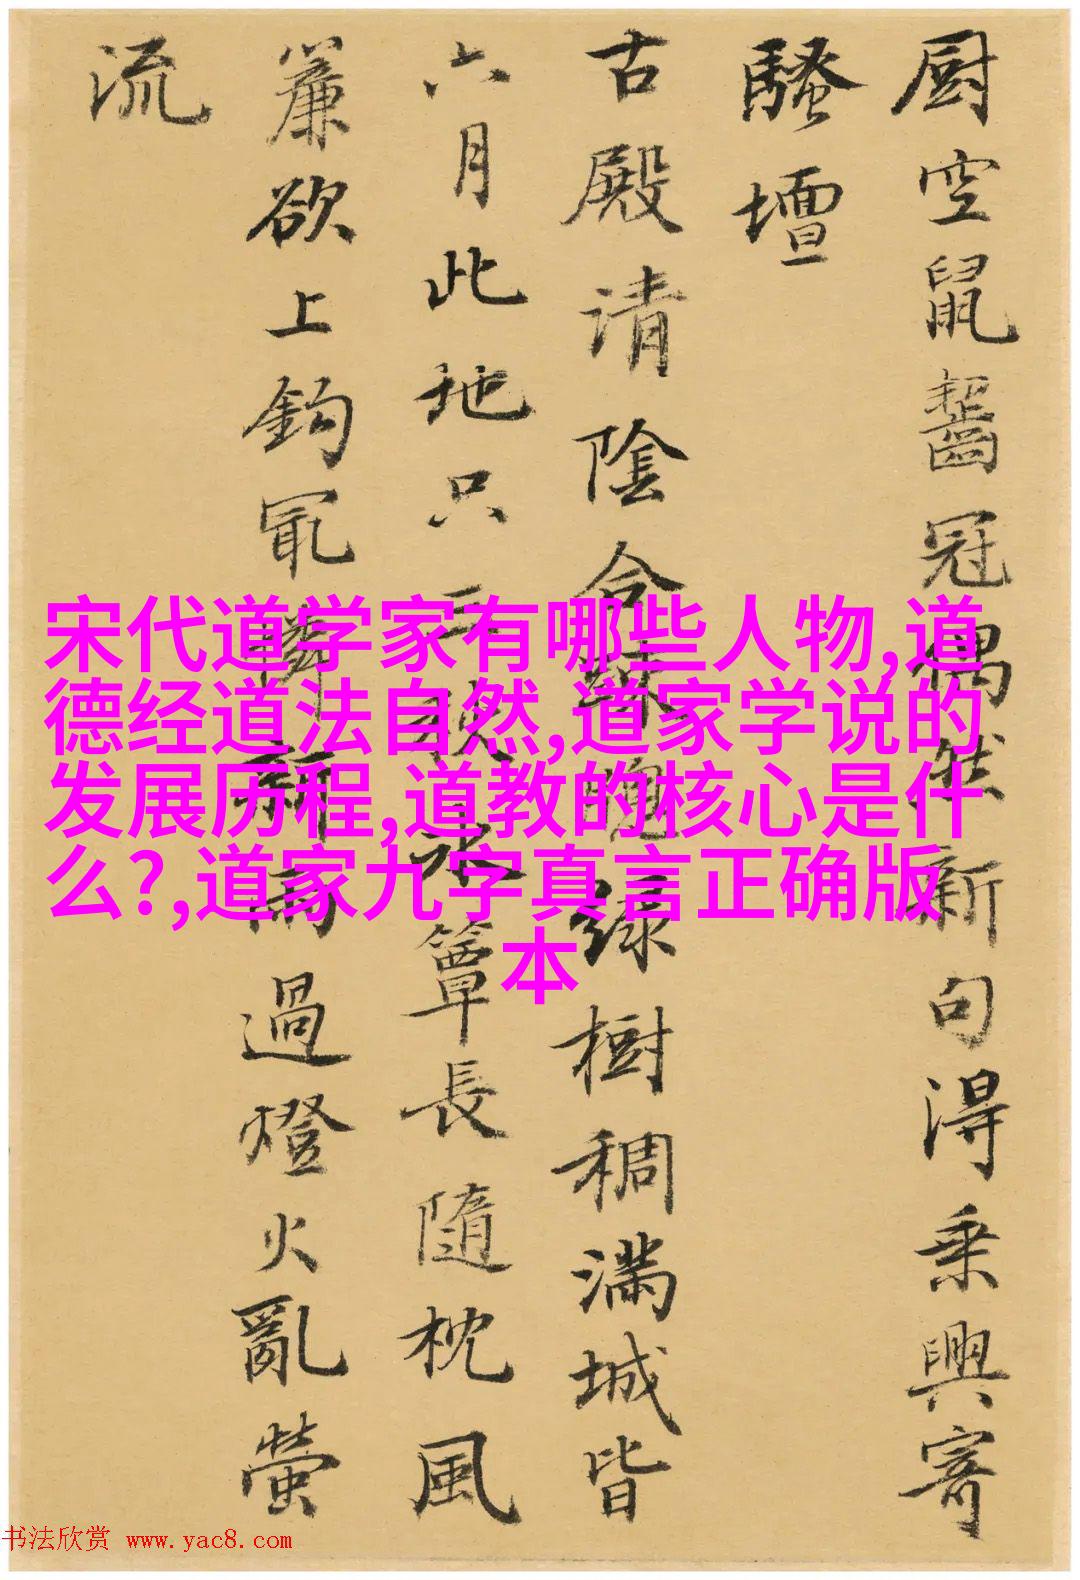 厨空鼠齧冠偶然新句得乘興寄
騷壇
古殿清陰合綠樹稠满城皆
六月此地只三秋冰簟長隨枕風
簾欲上鈎冣憐新雨過燈火亂螢
流
宋代道学家有哪些人物,道
德经道法自然,道家学说的
发展历程,道教的核心是什
么?,道家九字真言正确版
本
书法欣赏 www.yac8.com